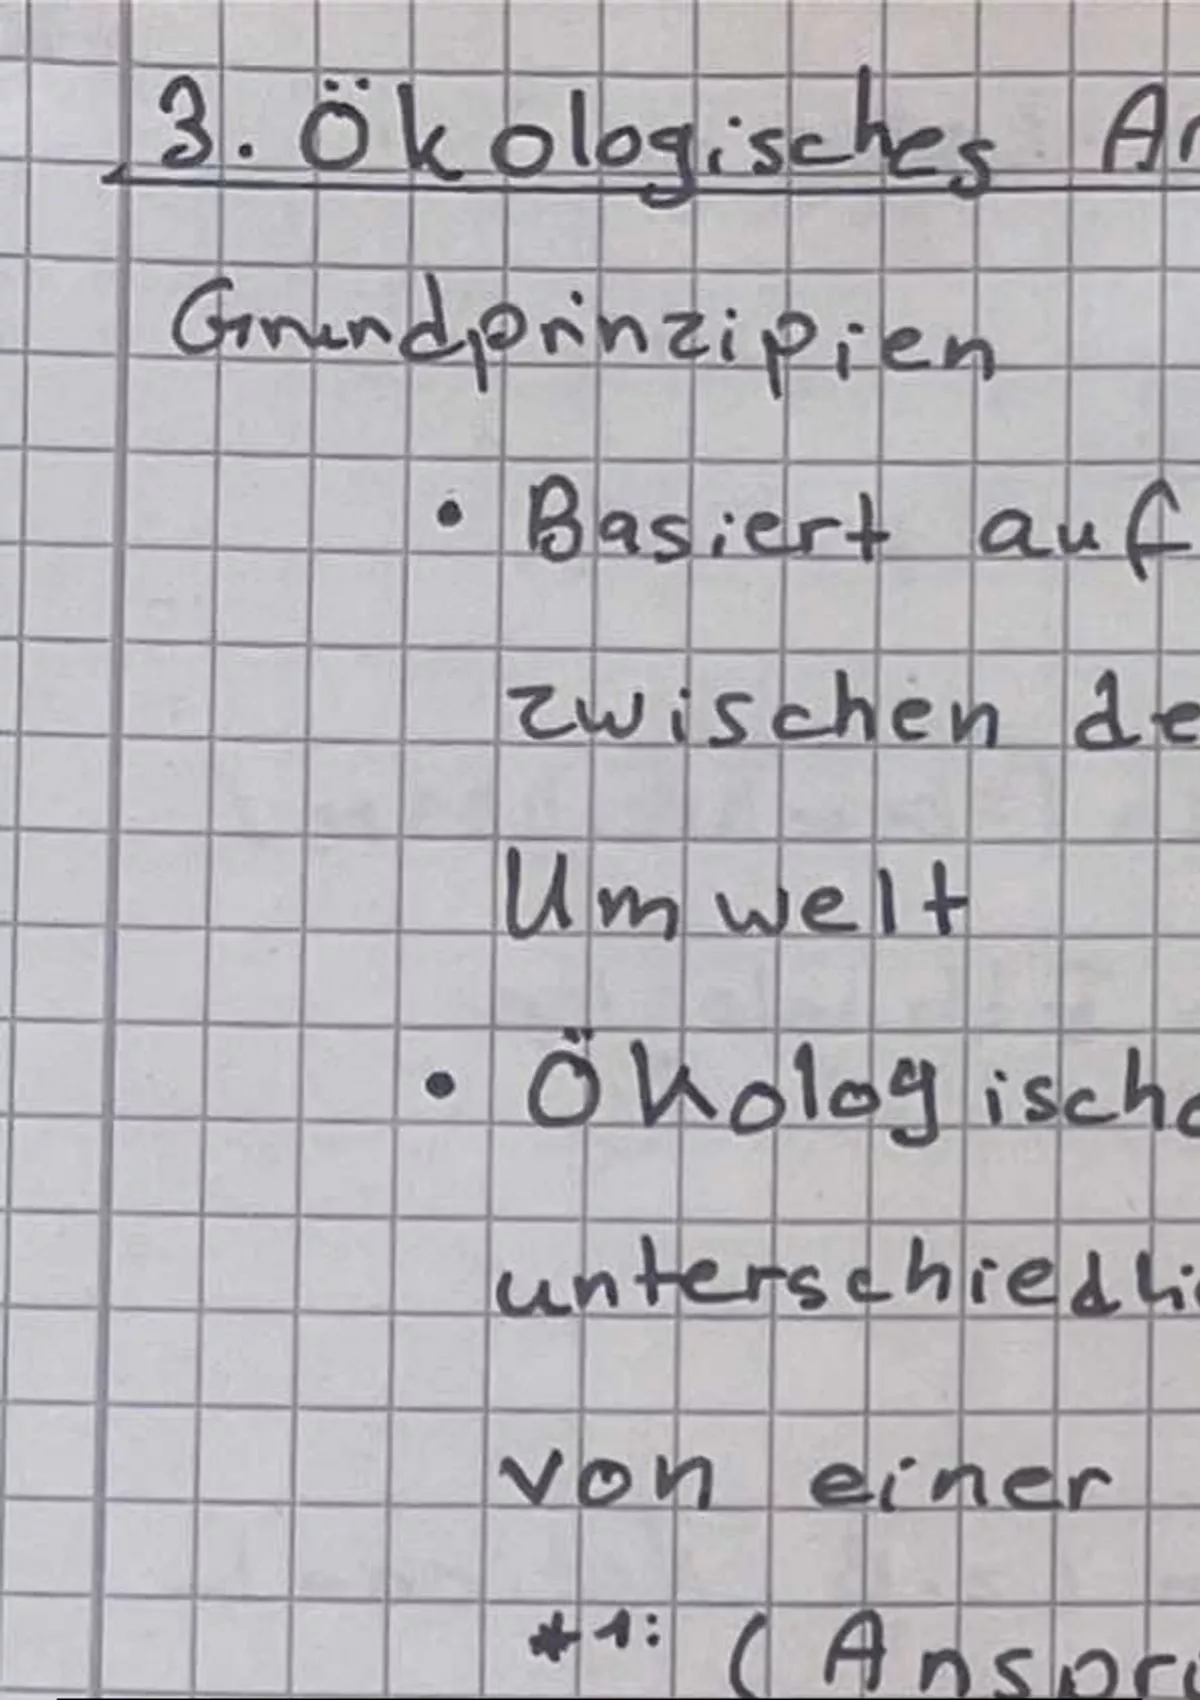 3. Ökologisches
Grundprinzipien
• Basiert auf
zwischen de
Umwelt
• Ökologisch
unterschiedli
von einer
*1: (Anspr